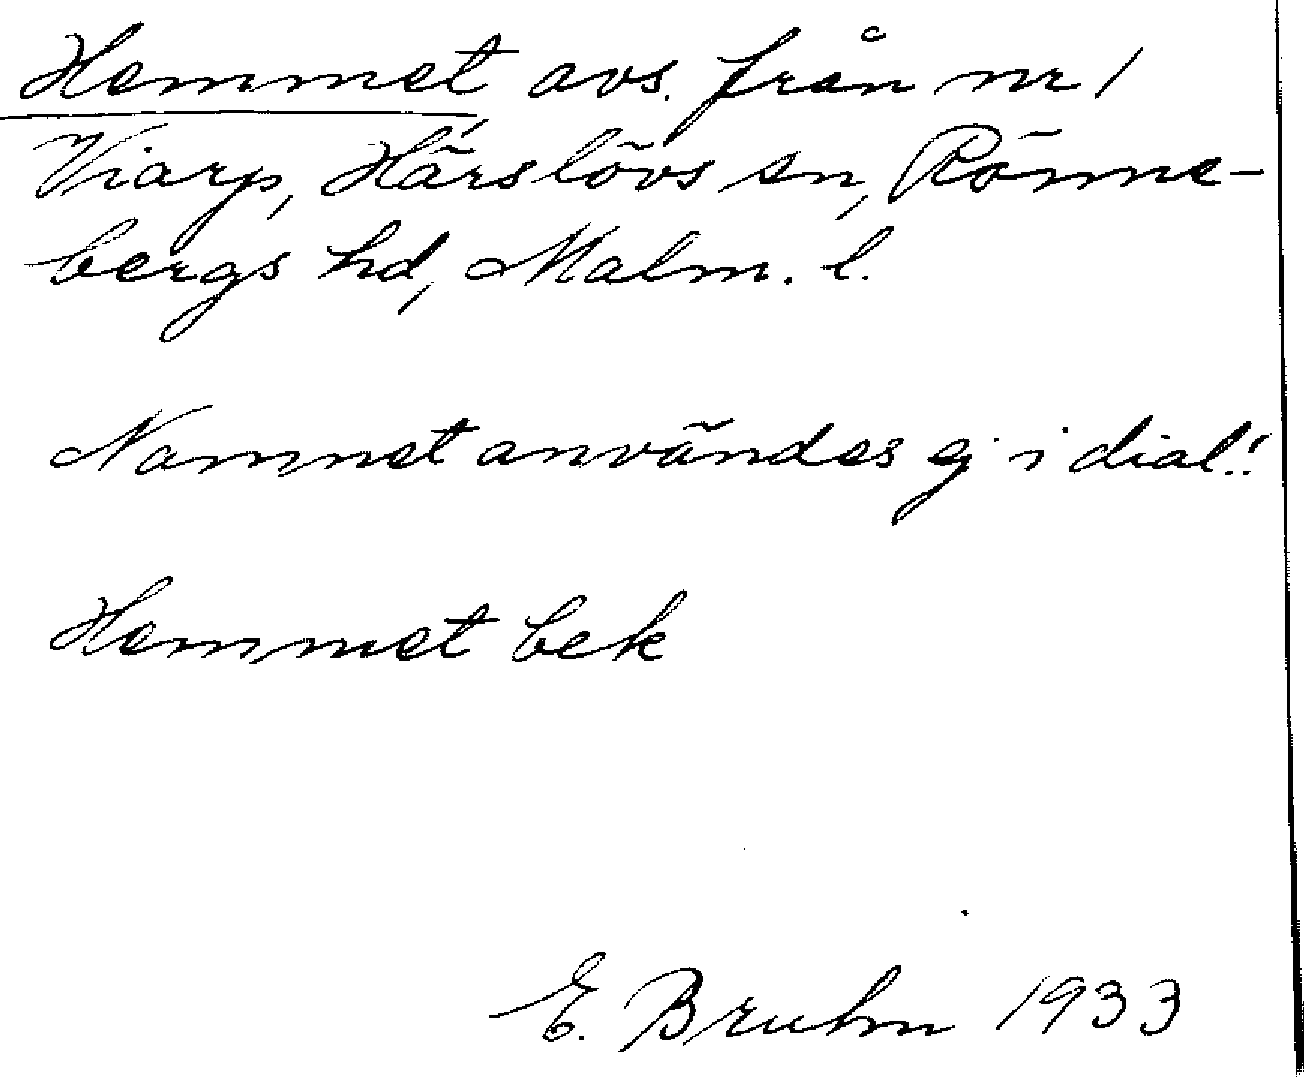 Hemmet, avs. från nr 1
Viarp, Härslövs sn, Rönne-
bergs hd, Malm. l.
Namnet användes ej i dial.!
Hemmet bek
E. Bruhn 1933